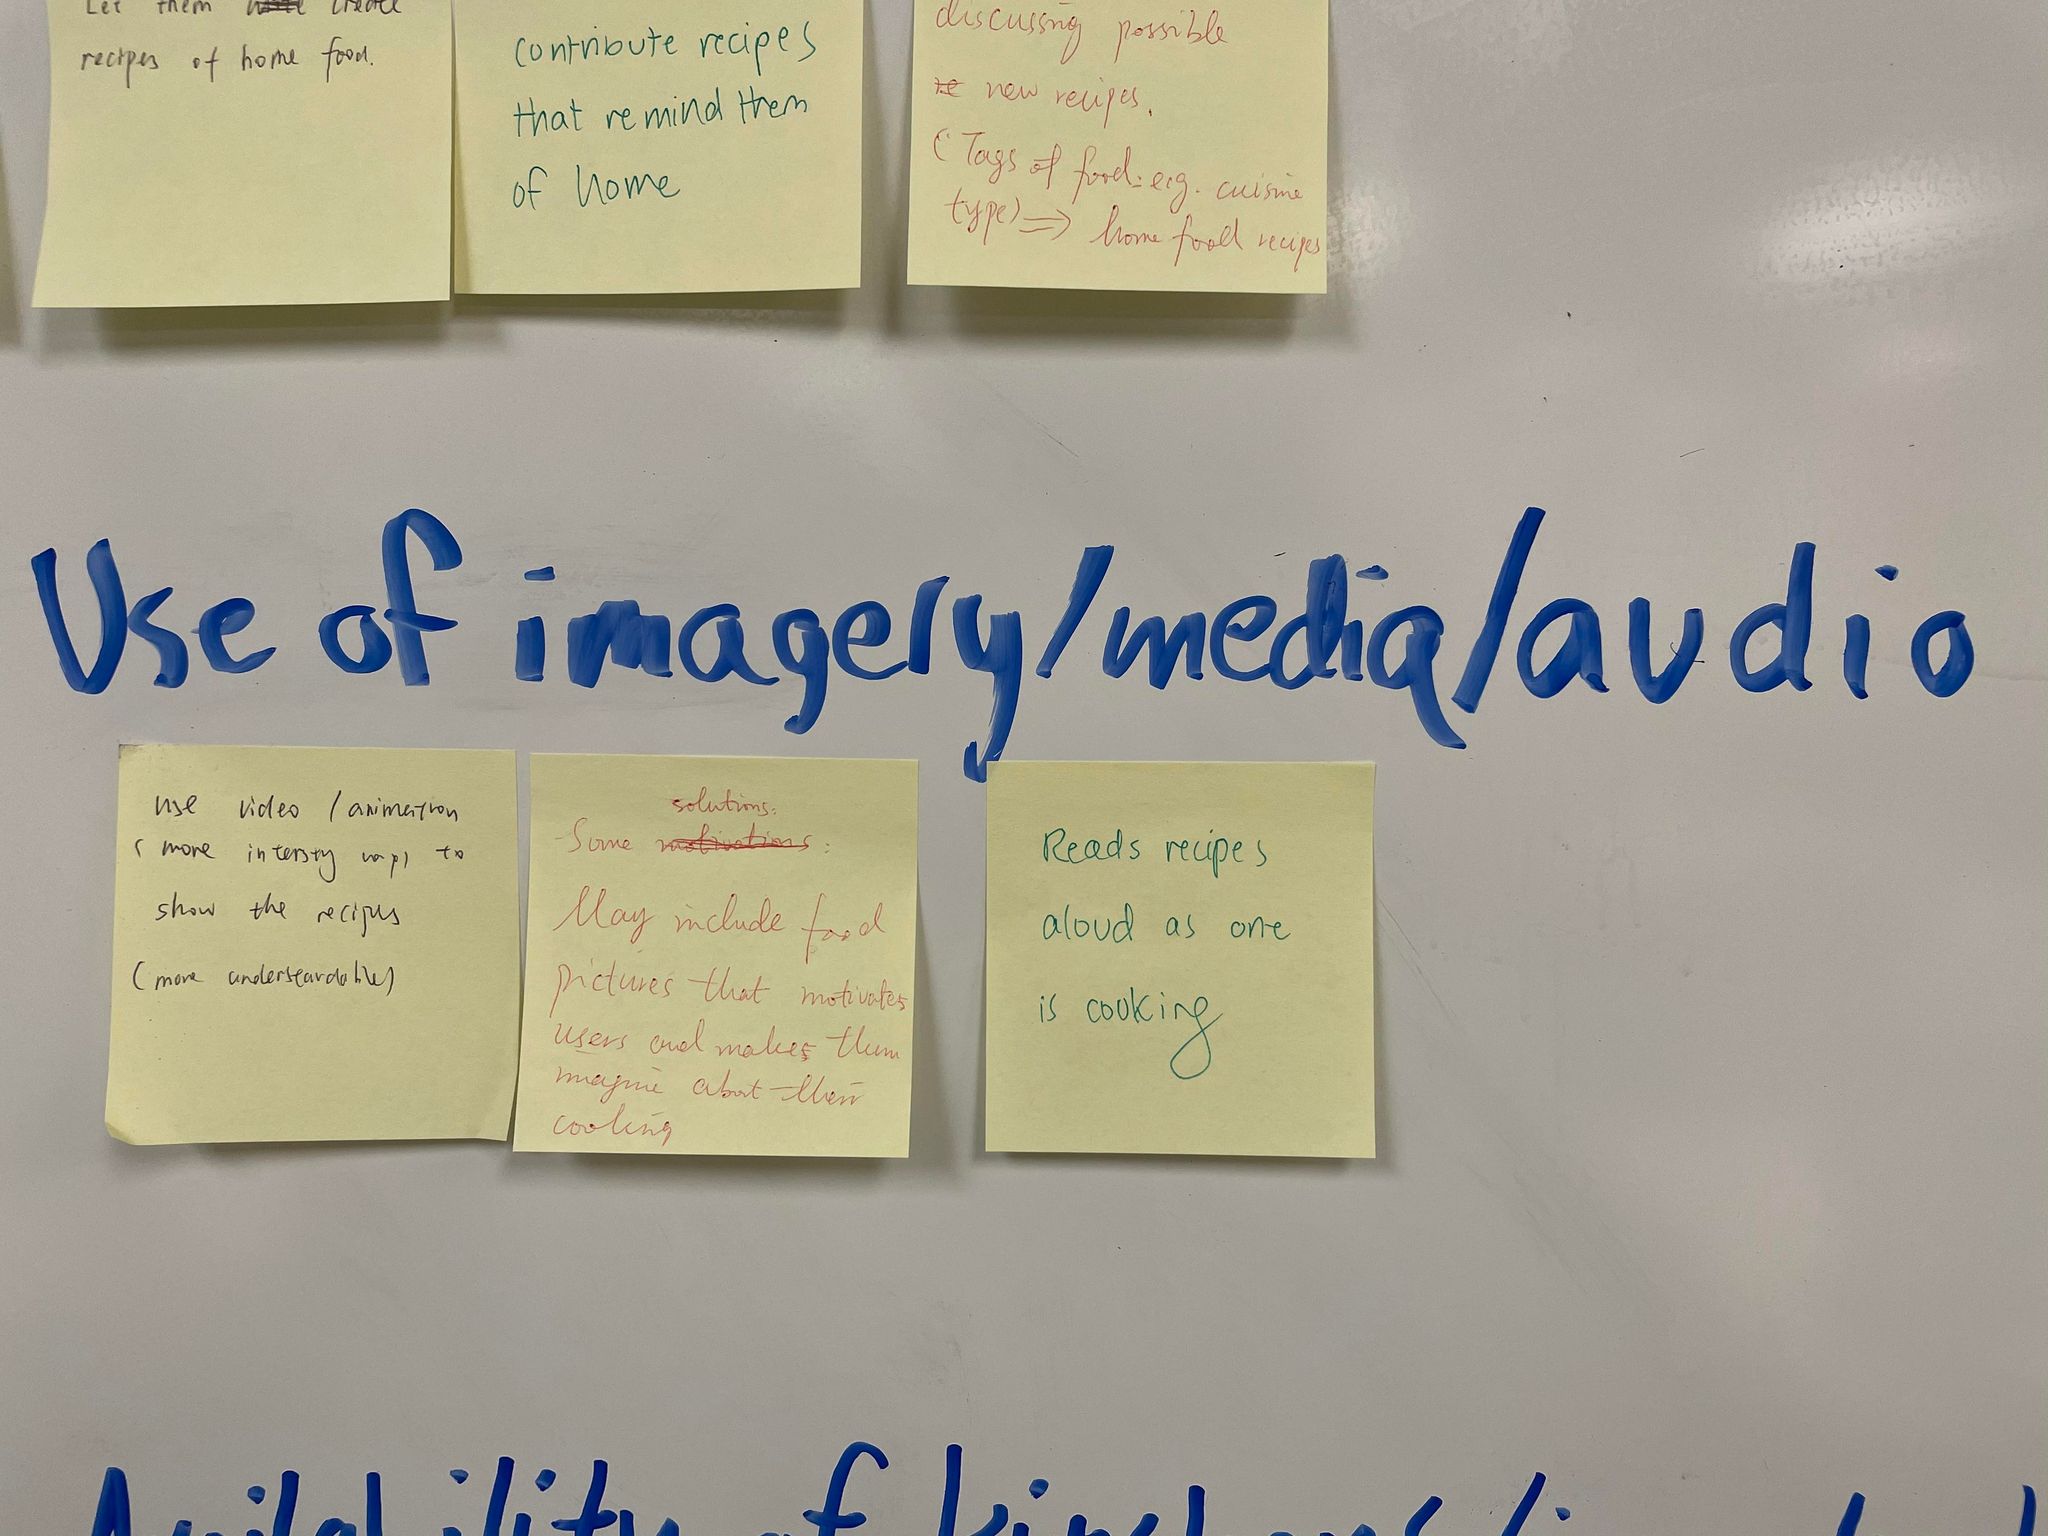 Let them create
recipes of home food.
contribute recipes
that remind them
of home
discussing possible
re new recipes.
(Tags of food: e.g. cuisine
type) => home food recipes
Use of imagery/media/audio
use video / animation
(more intersty way) to
show the recipes
(more understandable)
solutions:
-Some motivations:
May include food
pictures that motivates
users and makes them
imagine about their
cooking
Reads recipes
aloud as one
is cooking
Availability of